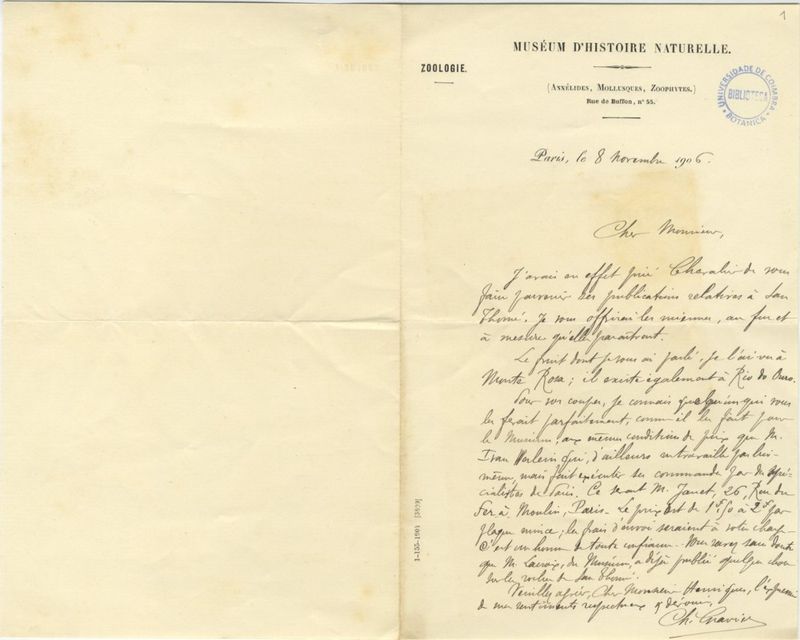 1
MUSÉUM D'HISTOIRE NATURELLE.
ZOOLOGIE.
(ANNÉLIDES, MOLLUSQUES, ZOOPHYTES.)
Rue de Buffon, n° 55.
UNIVERSIDADE DE COIMBRA
BIBLIOTECA
BOTANICA
Paris, le 8 Novembre 1906.
Cher Monsieur,
J'avais en effet prié Chevalier de vous
faire parvenir ses publications relatives à San
Thomé. Je vous offrirai les miennes, au fur et
à mesure qu'elles paraîtront.
Le fruit dont je vous ai parlé, je l'ai vu à
Monte Rosa; il existe également à Rio do Ouro.
Pour vos coupes, je connais quelqu'un qui vous
les ferait parfaitement, comme il les fait pour
le Muséum, aux mêmes conditions de prix que M.
Ivan Werlein qui, d'ailleurs ne travaille pas lui-
même, mais fait exécuter ses commandes par des spé-
cialistes de Paris. Ce serait M. Janet, 26, Rue du
Fer à Moulin, Paris. Le prix est de 1f50 à 2f par
plaque mince; les frais d'envoi seraient à votre charge.
C'est un homme de toute confiance. Vous savez sans doute
que M. Lacroix, du Muséum, a déjà publié quelque chose
sur les roches de San Thomé.
Veuillez agréer, Cher Monsieur Henriques, l'expression
de mes sentiments respectueux et dévoués,
Ch. Gravier